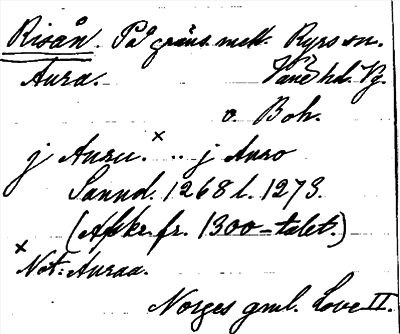 Risån. På gräns. mell. Ryrs sn.
Aura. Väne hd. Vg.
o. Boh.
j Auru.× .. j Auro
Sannd. 1268 l. 1273.
(Afskr. fr. 1300-talet.)
× Not: Auraa.
Norges gml. Love II.